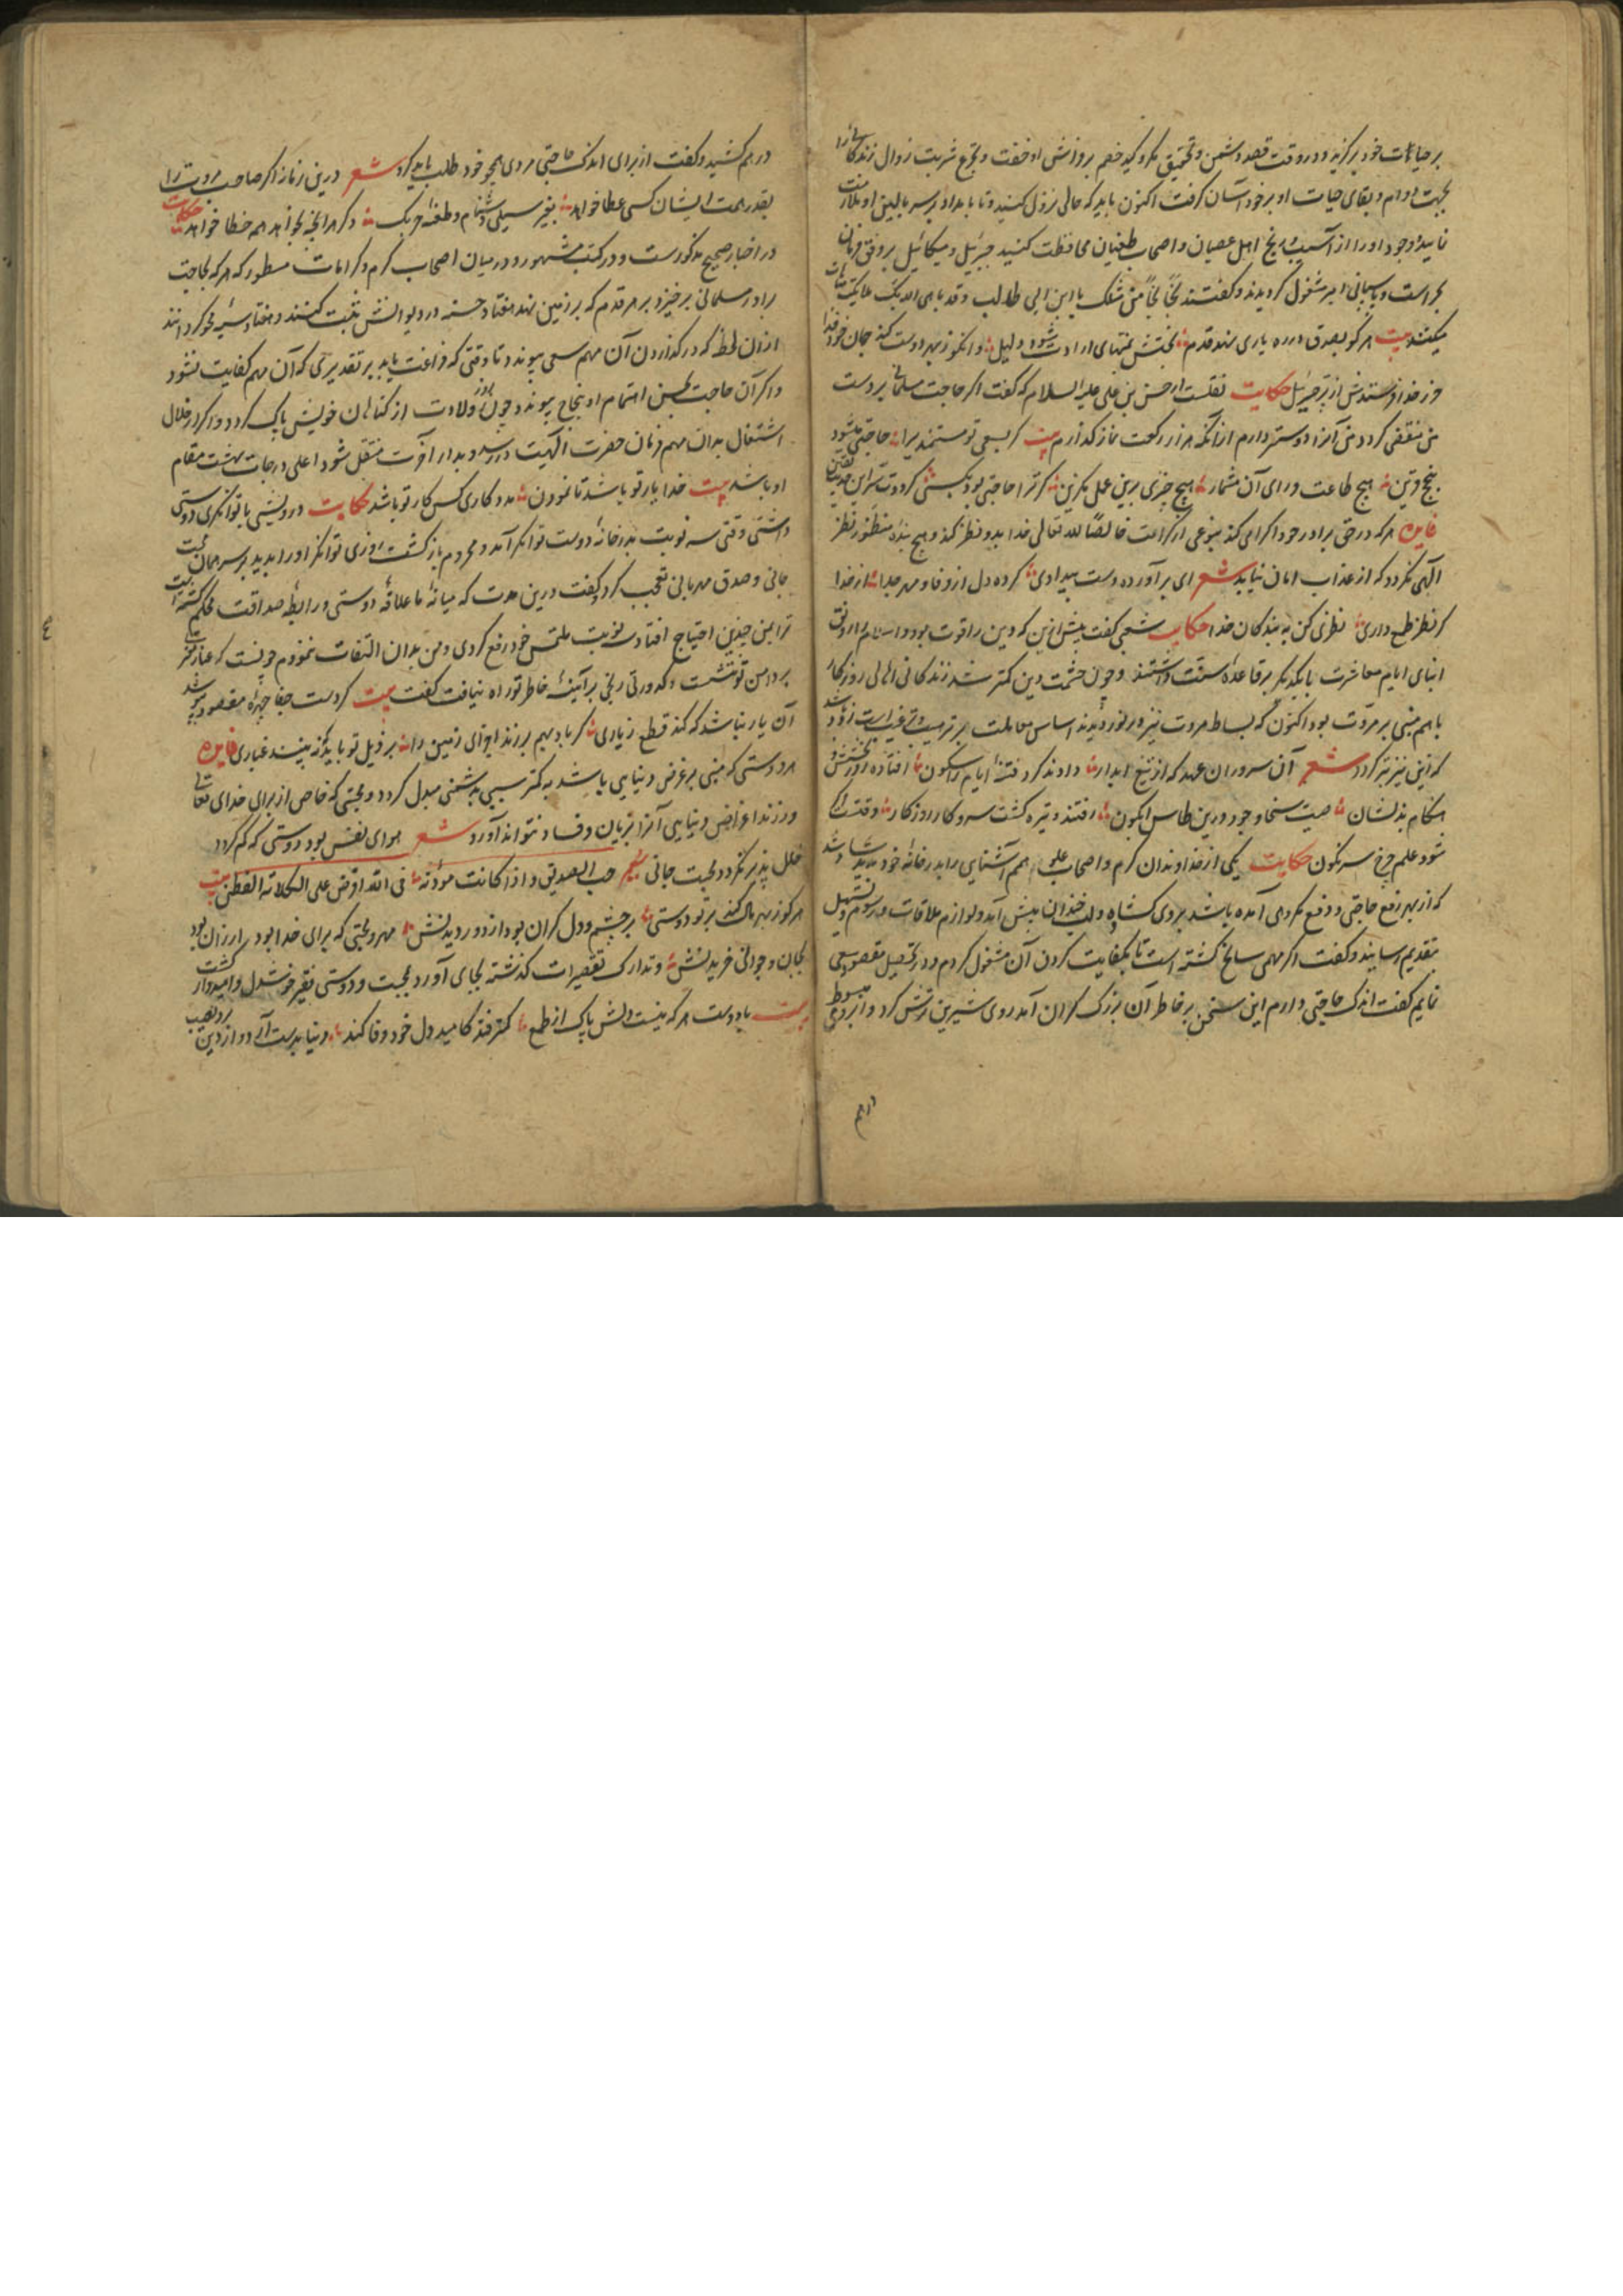 بر حیات خود برگزید و در وقت قصد دشمن و تحقیق مکر و کید خصم بر فراش او خفت و تجرع شربت زوال زندگانی را
بجهت دوام و بقای حیات او بر خود آسان گرفت اکنون باید که حالی نزول کنید و تا بامداد بر سر بالین او ملازمت
نمایید و وجود او را از آسیب و رنج اهل عصیان و اصحاب طغیان محافظت کنید جبرئیل و میکائیل بر وفق فرمان
بحراست و پاسبانی امیر مشغول گردیدند و گفتند بخاً بخاً من مثلک یا ابن ابی طالب و قد باهی الله بک ملائکته
میکشد بیت هر کو بصدق در ره یاری نهد قدم بختش بمنتهای ارادت شود دلیل وانکو ز بهر دوست کند جان خود فدا
نزد خدا فرستدش از پر جبرئیل حکایت نقلست از حسن بن علی علیه السلام که گفت اگر حاجت مسلمانی بر دست
من منقضی گردد من آنرا دوستر دارم از آنکه هزار رکعت نماز گذارم بیت گر بسعی تو مستمندی را حاجتی میشود
هیچ طاعت ورای آن مشمار هیچ چیزی برین عمل مگزین گر ترا حاجتی بود
فایده هر که در حق برادر خود اکرامی کند بنوعی از کرامت خالصاً لله تعالی خدا بدو نظر کند و هیچ بنده منظور نظر
الهی نگردد که از عذاب امان نیابد شعر ای برآورده دست بیدادی کرده دل از وفا و مهر جدا از خدا
گر نظر طمع داری نظری کن به بندگان خدا حکایت شعبی گفت پیش ازین که دین را قوت بود و اسلام را رونق
ابنای ایام معاشرت با یکدیگر بر قاعده سنت داشتند و چون حشمت دین کمتر شد زندگانی اهالی روزگار
با هم مبنی بر مروت بود اکنون که بساط مروت نیز در نوردیدند اساس معاملت بر ترهیب و ترغیب است زود باشد
که این نیز بتر گردد شعر آن سروران عهد که از تیغ ابدار دادند گرد فتنه ایام را سکون افتاده
هنگام بذلشان صیت سخا و جود درین طاس نیلگون رفتند و تیره گشت سر و کار روزگار وقتست
شود علم چرخ سرنگون حکایت یکی از خداوندان کرم و اصحاب علو همم آشنایی را بدر خانه خود بدید
که از بهر رفع حاجتی و دفع مکروهی آمده باشد بروی گشاده و لب خندان پیش آمد و لوازم ملاقات و رسوم
بتقدیم رسانید و گفت اگر مهمی سانح گشته است تا بکفایت کردن آن مشغول گردم و در تحصیل مقصود سعی
نمایم گفت اندک حاجتی دارم این سخن بر خاطر آن بزرگ گران آمد روی شیرین ترش کرد و ابروی
درهم
درهم کشید و گفت از برای اندک حاجتی مردی همچو خود طلب باید کرد شعر درین زمانه اگر صاحب مروت را
بقدر همت ایشان کسی عطا خواهد بغیر سیلی و دشنام و طعنه و گر هر آنچه بخواهد همه خطا خواهد حکایت
در اخبار صحیح مذکورست و در کتب مشهور و در میان اصحاب کرم و کرامات مسطور که هر که بحاجت
برادر مسلمانی برخیزد بر هر قدم که بر زمین نهد هفتاد حسنه در دیوانش ثبت کنند و هفتاد سیئه محو گردانند
ازان لحظه که در گذاردن آن مهم سعی پیوندد تا وقتی که فراغت یابد بر تقدیری که آن مهم کفایت نشود
و اگر آن حاجت بحسن اهتمام او بنجاح پیوندد چون روز ولادت از گناهان خویش پاک گردد و اگر در خلال
اشتغال بدان مهم فرمان حضرت الهیت در رسد و بدار آخرت منتقل شود اعلی درجات بهشت مقام
او باشد بیت خدا یار تو باشد تا نمودن مددکاری کس کار تو باشد حکایت درویشی با توانگری دوستی
داشتی وقتی سه نوبت بدر خانه دوست توانگر آمد و محروم بازگشت روزی توانگر او را بدید بر سر همان
جانی و صدق مهربانی تعجب کرد گفت درین مدت که میانه ما علاقه دوستی و رابطه صداقت محکم گشته است
ترا بمن چندین احتیاج افتاد
بر دامن تو ننشست و کدورتی و رنجی بر آیینه خاطر تو راه نیافت گفت بیت گر دست جفا چهره مقصود
آن یار نباشد که کند قطع ز یاری گر باد بهم برزند اجزای زمین را بر ذیل تو باید که نبینند غباری فایده
هر دوستی که مبنی بر غرض دنیایی باشد به کمتر سببی بدشمنی مبدل گردد و محبتی که خاص از برای خدای تعالی
ورزند اعراض دنیایی آنرا بزیان و فساد نتواند آورد شعر هوای نفس بود دوستی که کم گردد
خلل پذیر نگردد محبت جانی شعر حب الصدیق و اذا کانت مودته فی الله افرض علی الکلانه الفطن بیت
هر کو ز بهر مال کند بر تو دوستی بر چشم و دل گران بود از دور دیدنش مهر و محبتی که برای خدا بود ارزان بود
بجان و جوانی خریدنش و تدارک تقصیرات گذشته بجای آورد و بمحبت و دوستی فقیر خوشدل و امیدوار گشت
بیت با دوست هر که نیست دلش پاک از طمع کمتر فتد که امید دل خود وفا کند دنیا بدست آرد و از دین